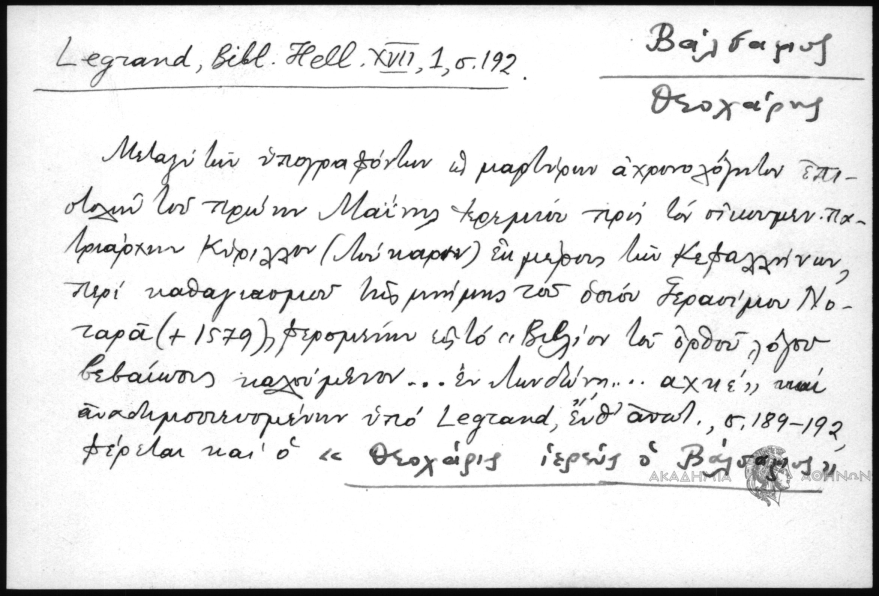 Legrand, Bibl. Hell. XVII, 1, σ. 192.
Βάλσαμος
Θεοχάρης
Μεταξύ τῶν ὑπογραφόντων ὡς μαρτύρων ἀχρονολόγητον ἐπι-
στολήν τοῦ πρώην Μαΐνης Ἱερεμίου πρός τόν οἰκουμεν. πα-
τριάρχην Κύριλλον (Λούκαριν) ἐκ μέρους τῶν Κεφαλλήνων,
περί καθαγιασμοῦ τῆς μνήμης τοῦ ὁσίου Γερασίμου Νο-
ταρᾶ (+ 1579), φερομένην εἰς τό «Βιβλίον τοῦ ὀρθοῦ λόγου
βεβαίωσις καλούμενον... ἐν Λονδώνῃ... αχκε΄» καί
ἀναδημοσιευομένην ὑπό Legrand, ἔνθ᾽ ἀνωτ., σ. 189-192,
φέρεται καί ὁ «Θεοχάρις ἱερεύς ὁ Βάλσαμος»
ΑΚΑΔΗΜΙΑ ΑΘΗΝΩΝ